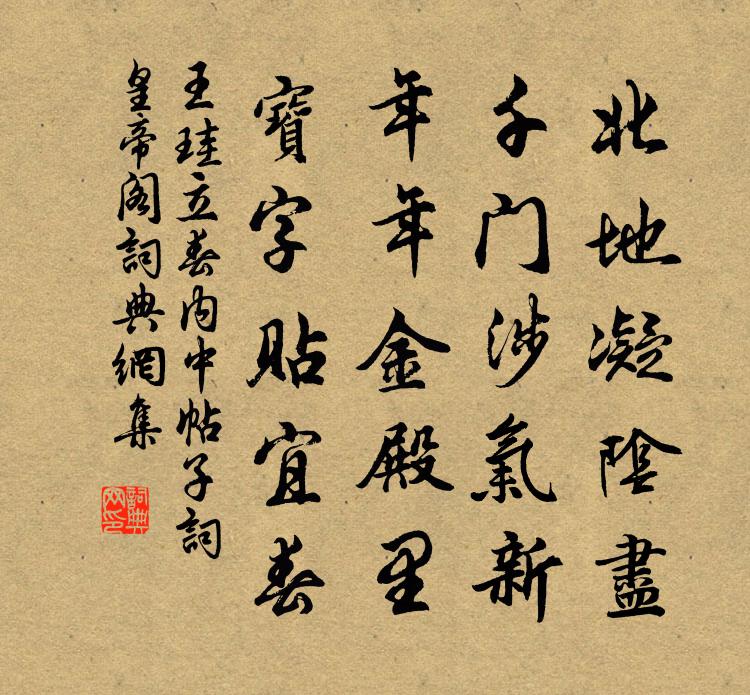 北地凝陰盡
千门涉氣新
年年金殿里
寶字貼宜春
王珪立春内中帖子詞
皇帝阁詞典網集
詞典
网印